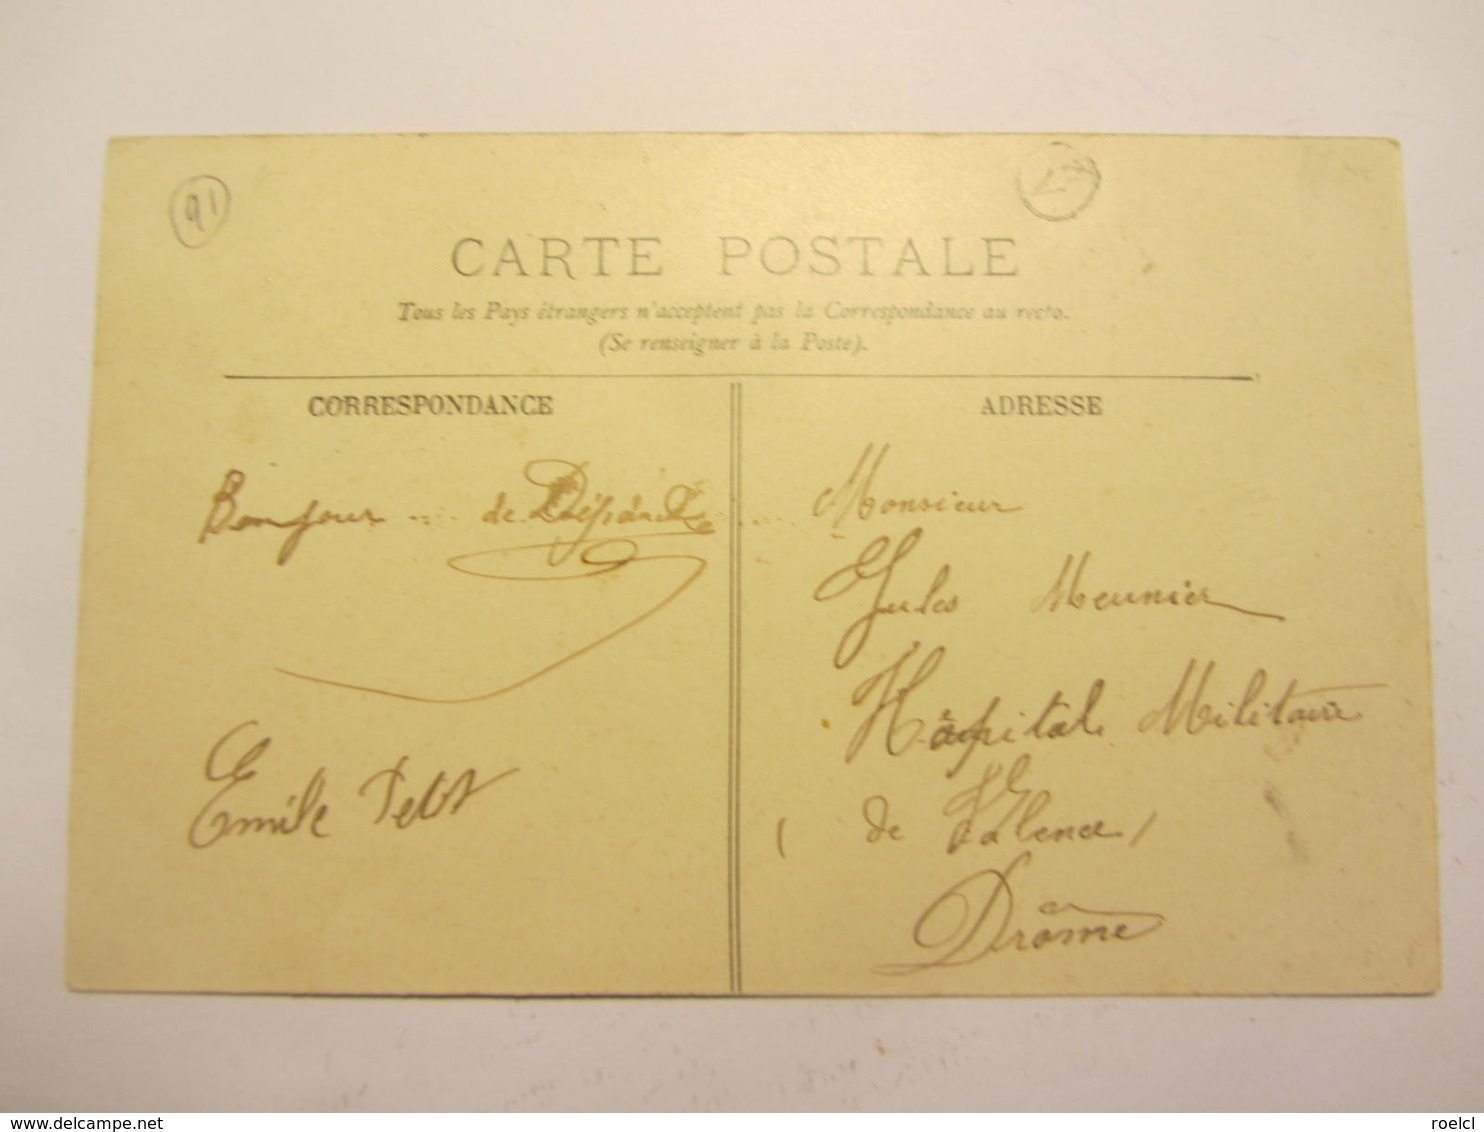 91
CARTE POSTALE
Tous les Pays étrangers n'acceptent pas la Correspondance au recto.
(Se renseigner à la Poste).
CORRESPONDANCE
ADRESSE
Bonjour .... de
Emile Petit
Monsieur
Jules Meunier
Hôpital Militaire
( de Valence )
Drôme
www.delcampe.net
roelcl